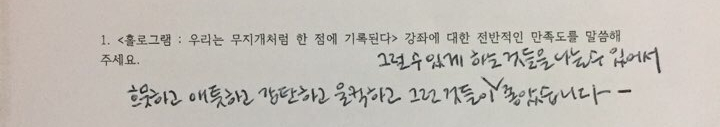 1. <홀로그램 : 우리는 무지개처럼 한 점에 기록된다> 강좌에 대한 전반적인 만족도를 말씀해
주세요.
그럴 수 있게 하는 것들을 나눌 수 있어서
흐뭇하고 애틋하고 감탄하고 울컥하고 그런 것들이 좋았습니다 -